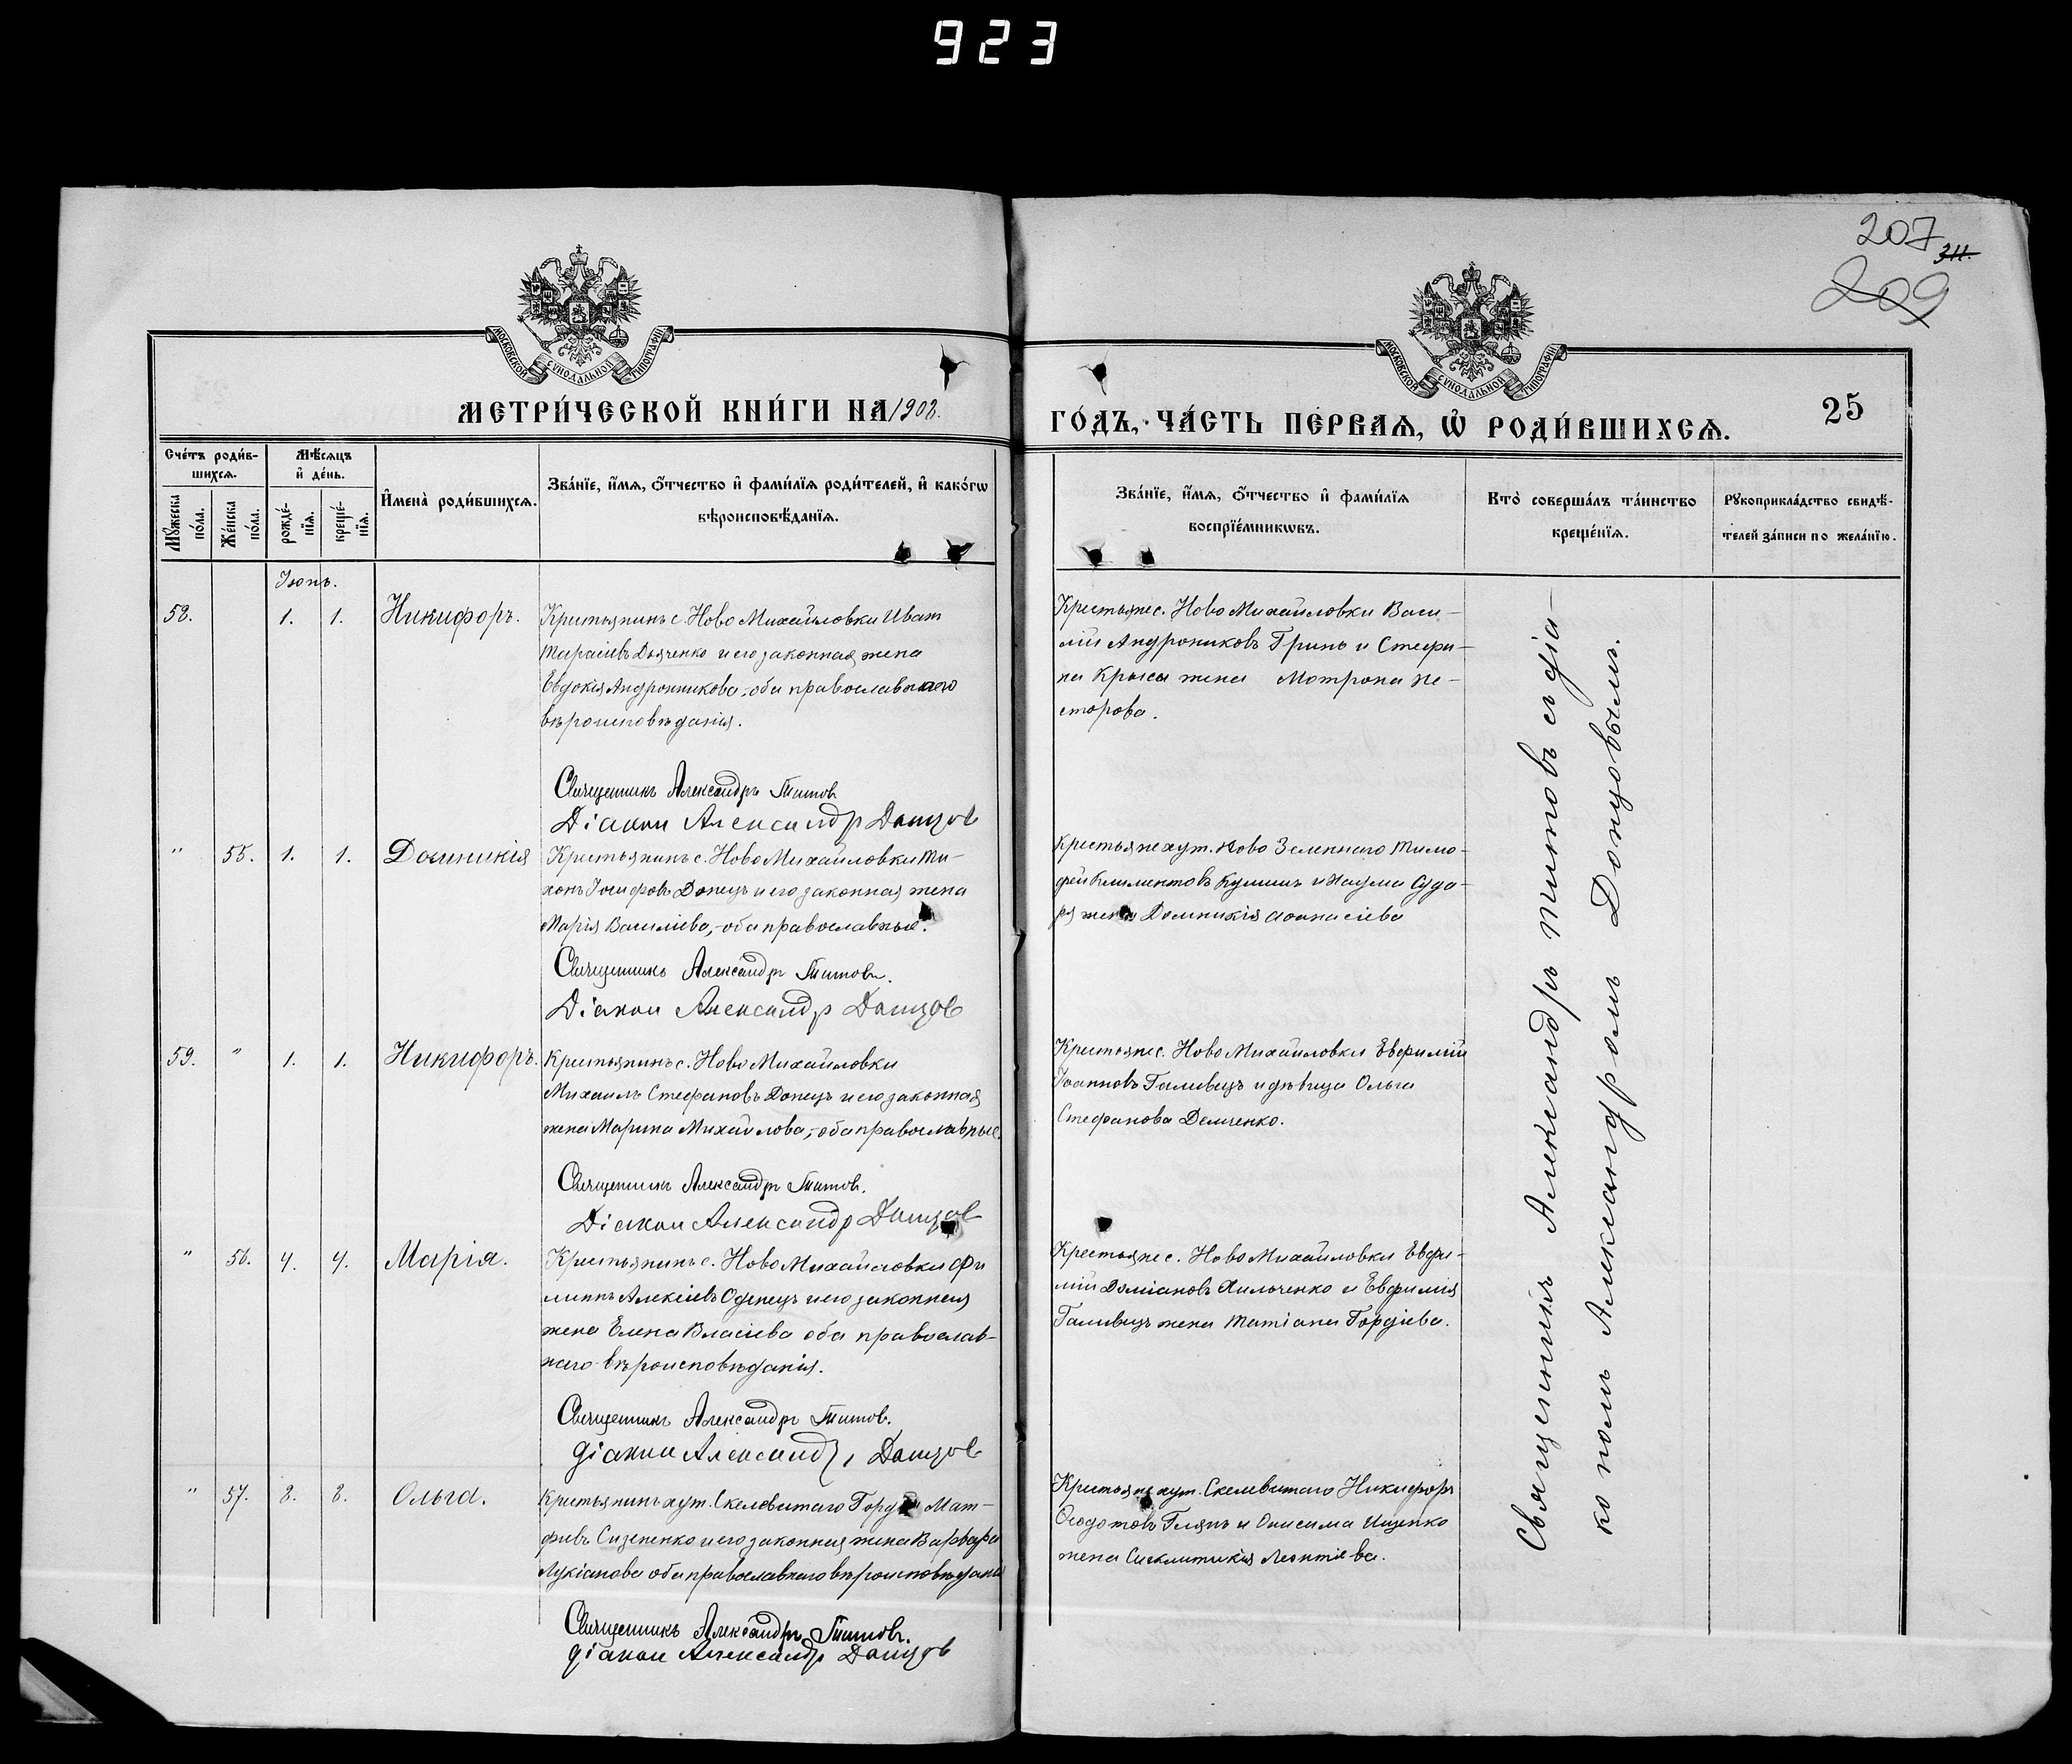 923
207
311.
209
МОСКОВСКОЙ СѴНОДАЛЬНОЙ ТИПОГРАФІИ
МОСКОВСКОЙ СѴНОДАЛЬНОЙ ТИПОГРАФІИ
МЕТРИ́ЧЕСКОЙ КНИ́ГИ НА 1908.
ГО́ДЪ, ЧА́СТЬ ПЕ́РВАѦ, Ѽ РОДИ́ВШИХСѦ.
25
Сче́тъ роди́в-
шихсѧ.
Мѣ́сѧцъ
и҆ де́нь.
Мꙋ́жеска
по́ла.
Же́нска
по́ла.
рожде́-
нїѧ.
креще́-
нїѧ.
И҆мена̀ роди́вшихсѧ.
Зва́нїе, и҆́мѧ, ѻ҆́тчество и҆ фами́лїѧ роди́телей, и҆ како́гѡ
вѣроисповѣ́данїѧ.
Зва́нїе, и҆́мѧ, ѻ҆́тчество и҆ фами́лїѧ
воспрїе́мникѡвъ.
Кто̀ соверша́лъ та́инство
креще́нїѧ.
Рꙋкоприкла́дство свидѣ́-
телей за́писи по жела́нїю.
Іюнь.
58.
1.
1.
Никифоръ.
Крестьянинъ с. Ново Михайловки Иван
Тарасіевъ Дьяченко и его законная жена
Евдокія Андронникова, оба православнаго
вѣроисповѣданія.
Священникъ Александръ Титов
Діакон Александр Донцов
Крестьяне с. Ново Михайловки Васи-
лій Андрониковъ Гринь и Стефа-
на Крыса жена Мотрона Не-
сторова.
"
55.
1.
1.
Домникія
Крестьянинъ с. Ново Михайловки Ти-
хонъ Іосифовъ Донецъ и его законная жена
Марія Василіева, - оба православные.
Священникъ Александръ Титовъ.
Діакон Александр Донцов
Крестьяне хут. Ново Зеленаго Тимо-
фей Климентовъ Кулишъ и Наума Суда-
ря жена Домникія Аѳанасіева
59.
"
1.
1.
Никифоръ.
Крестьянинъ с. Ново Михайловки
Михаилъ Стефановъ Донецъ и его законная
жена Марина Михайлова, - оба православные.
Священникъ Александръ Титов.
Діакон Александр Донцов
Крестьяне с. Ново Михайловки Евфимій
Іоанновъ Галивецъ и дѣвица Ольга
Стефанова Демченко.
"
56.
4.
4.
Марія.
Крестьянинъ с. Ново Михайловки Фи
липпъ Алексіевъ Одинецъ и его законная
жена Елена Власіева оба православ-
наго вѣроисповѣданія.
Священникъ Александръ Титов.
діакон Александр Донцов
Крестьяне с. Ново Михайловки Евфи-
мій Даміановъ Хильченко и Евфимія
Галивецъ жена Татіана Гордіева.
"
57.
8.
8.
Ольга.
Крестьянинъ хут. Скелеватаго Гордій Мат-
фіевъ и его законная жена Варвара
Лукіанова оба православнаго вѣроисповѣданія
Священникъ Александръ Титовъ.
діакон Александр Донцов
Крестьяне хут. Скелеватаго Никифоръ
Ѳеодотовъ и Онисима Ищенко
жена Сигклитикія Леонтіева.
Священникъ Александръ Титовъ съ діа-
кономъ Александромъ Донцовымъ.